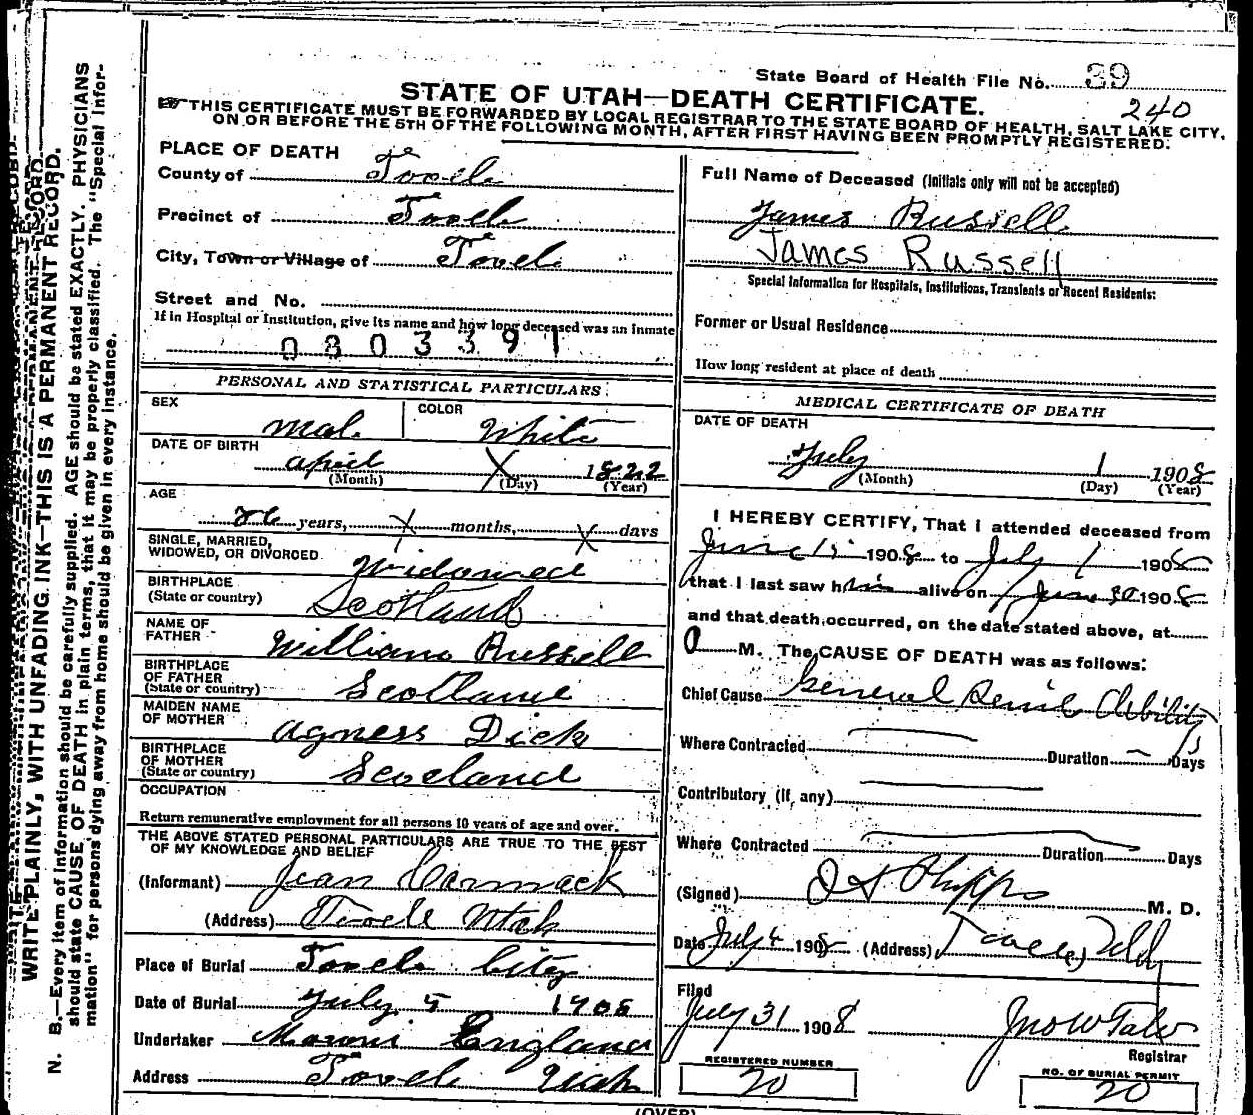 State Board of Health File No. 39
240
STATE OF UTAH—DEATH CERTIFICATE.
THIS CERTIFICATE MUST BE FORWARDED BY LOCAL REGISTRAR TO THE STATE BOARD OF HEALTH, SALT LAKE CITY,
ON OR BEFORE THE 5TH OF THE FOLLOWING MONTH, AFTER FIRST HAVING BEEN PROMPTLY REGISTERED.
PLACE OF DEATH
County of Tooele
Precinct of Tooele
City, Town or Village of Tooele
Street and No.
If in Hospital or Institution, give its name and how long deceased was an inmate
0803391
Full Name of Deceased (Initials only will not be accepted)
James Russell
James Russell
Special Information for Hospitals, Institutions, Transients or Recent Residents:
Former or Usual Residence
How long resident at place of death
PERSONAL AND STATISTICAL PARTICULARS
SEX Male COLOR White
DATE OF BIRTH
April X 1822
(Month) (Day) (Year)
AGE
86 years, X months, X days
SINGLE, MARRIED,
WIDOWED, OR DIVORCED Widowed
BIRTHPLACE
(State or country) Scotland
NAME OF
FATHER William Russell
BIRTHPLACE
OF FATHER
(State or country) Scotland
MAIDEN NAME
OF MOTHER Agness Dick
BIRTHPLACE
OF MOTHER
(State or country) Scotland
OCCUPATION
Return remunerative employment for all persons 10 years of age and over.
THE ABOVE STATED PERSONAL PARTICULARS ARE TRUE TO THE BEST
OF MY KNOWLEDGE AND BELIEF
(Informant) Jean Cormack
(Address) Tooele Utah
Place of Burial Tooele City
Date of Burial July 5 1908
Undertaker Moroni England
Address Tooele Utah
MEDICAL CERTIFICATE OF DEATH
DATE OF DEATH
July 1 1908
(Month) (Day) (Year)
I HEREBY CERTIFY, That I attended deceased from
June 15 1908 to July 1 1908
that I last saw him alive on June 30 1908
and that death occurred, on the date stated above, at
M. The CAUSE OF DEATH was as follows:
Chief Cause General Senile Debility
Where Contracted Duration 15 Days
Contributory (if any)
Where Contracted Duration Days
(Signed) Phipps M. D.
Date July 4 1908 (Address) Tooele, Utah
Filed
July 31 1908
Registrar
REGISTERED NUMBER
20
NO. OF BURIAL PERMIT
20
(OVER)
WRITE PLAINLY, WITH UNFADING INK—THIS IS A PERMANENT RECORD.
N. B.—Every item of information should be carefully supplied. AGE should be stated EXACTLY. PHYSICIANS
should state CAUSE OF DEATH in plain terms, that it may be properly classified. The "Special Infor-
mation" for persons dying away from home should be given in every instance.